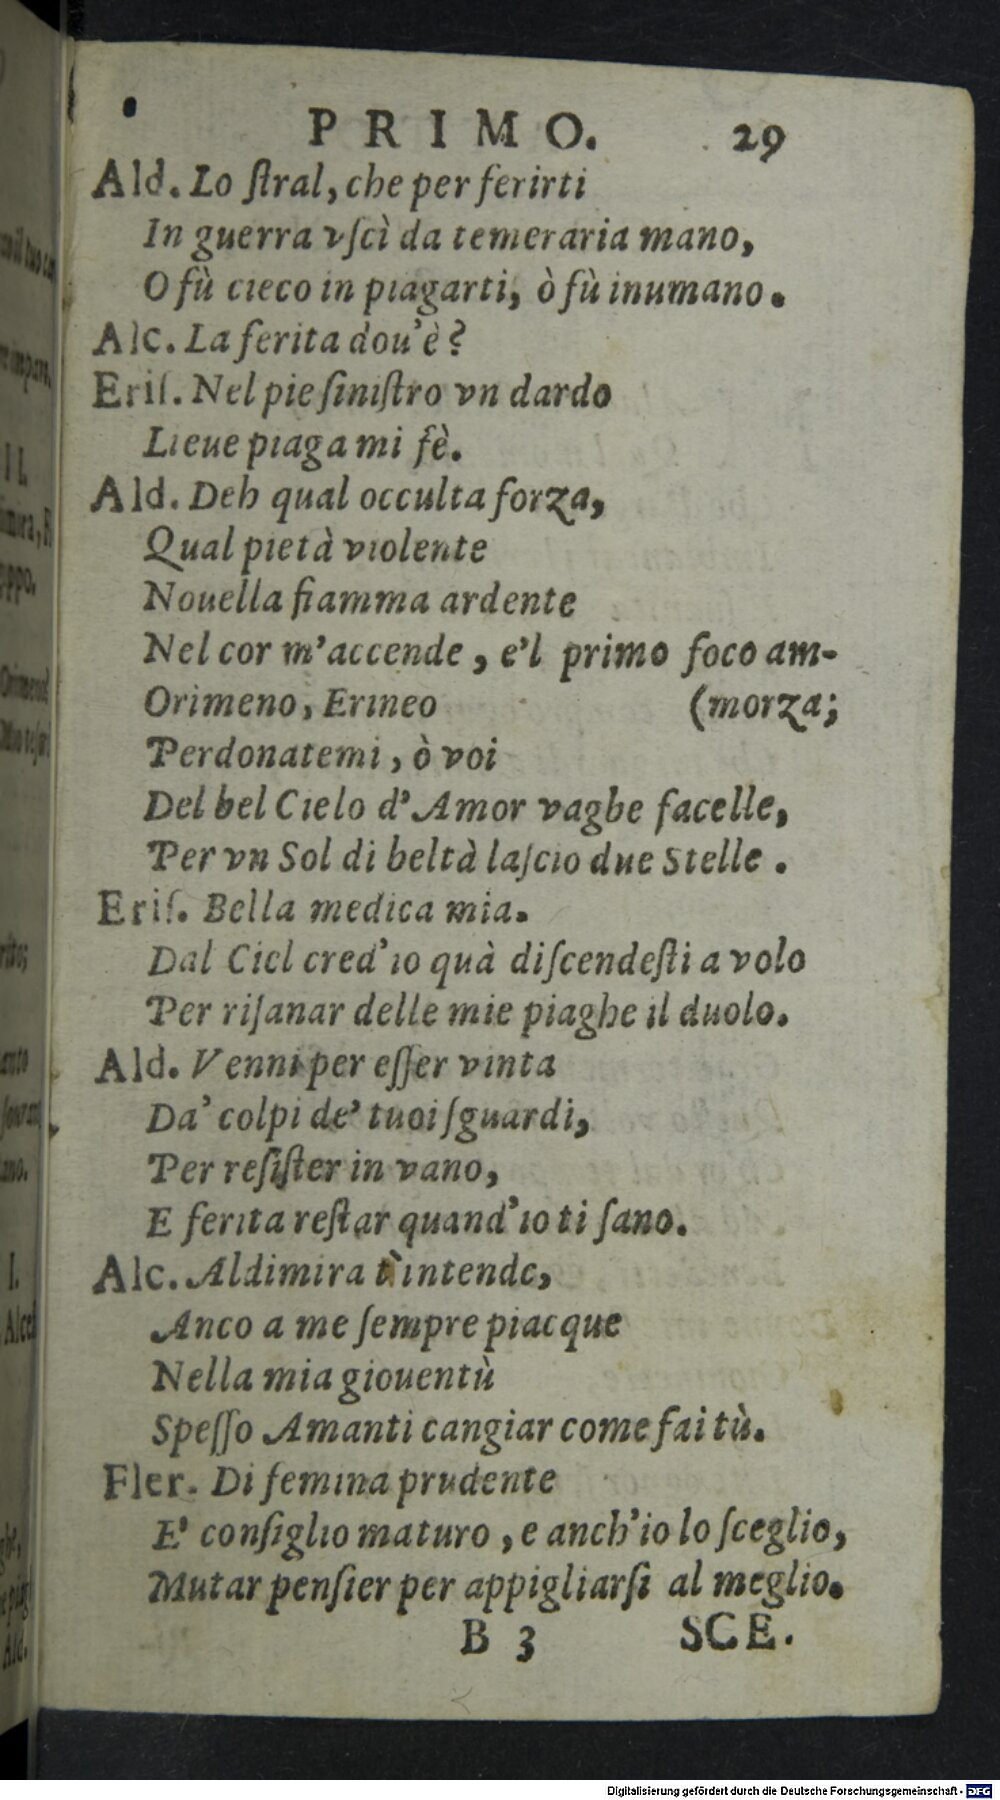 PRIMO. 29
Ald. Lo ſtral, che per ferirti
In guerra vſcì da temeraria mano,
O fù cieco in piagarti, ò fù inumano.
Alc. La ferita dou'è?
Eriſ. Nel pie ſiniſtro vn dardo
Lieue piaga mi fè.
Ald. Deh qual occulta forza,
Qual pietà violente
Nouella fiamma ardente
Nel cor m'accende, e'l primo foco am-
Orimeno, Erineo (morza;
Perdonatemi, ò voi
Del bel Cielo d'Amor vaghe facelle,
Per vn Sol di beltà laſcio due Stelle.
Eriſ. Bella medica mia.
Dal Ciel cred'io quà diſcendeſti a volo
Per riſanar delle mie piaghe il duolo.
Ald. Venni per eſſer vinta
Da' colpi de' tuoi ſguardi,
Per reſiſter in vano,
E ferita reſtar quand'io ti ſano.
Alc. Aldimira t'intende,
Anco a me ſempre piacque
Nella mia giouentù
Speſſo Amanti cangiar come fai tù.
Fler. Di femina prudente
E' conſiglio maturo, e anch'io lo ſceglio,
Mutar penſier per appigliarſi al meglio.
B 3 SCE.
Digitalisierung gefördert durch die Deutsche Forschungsgemeinschaft - DFG